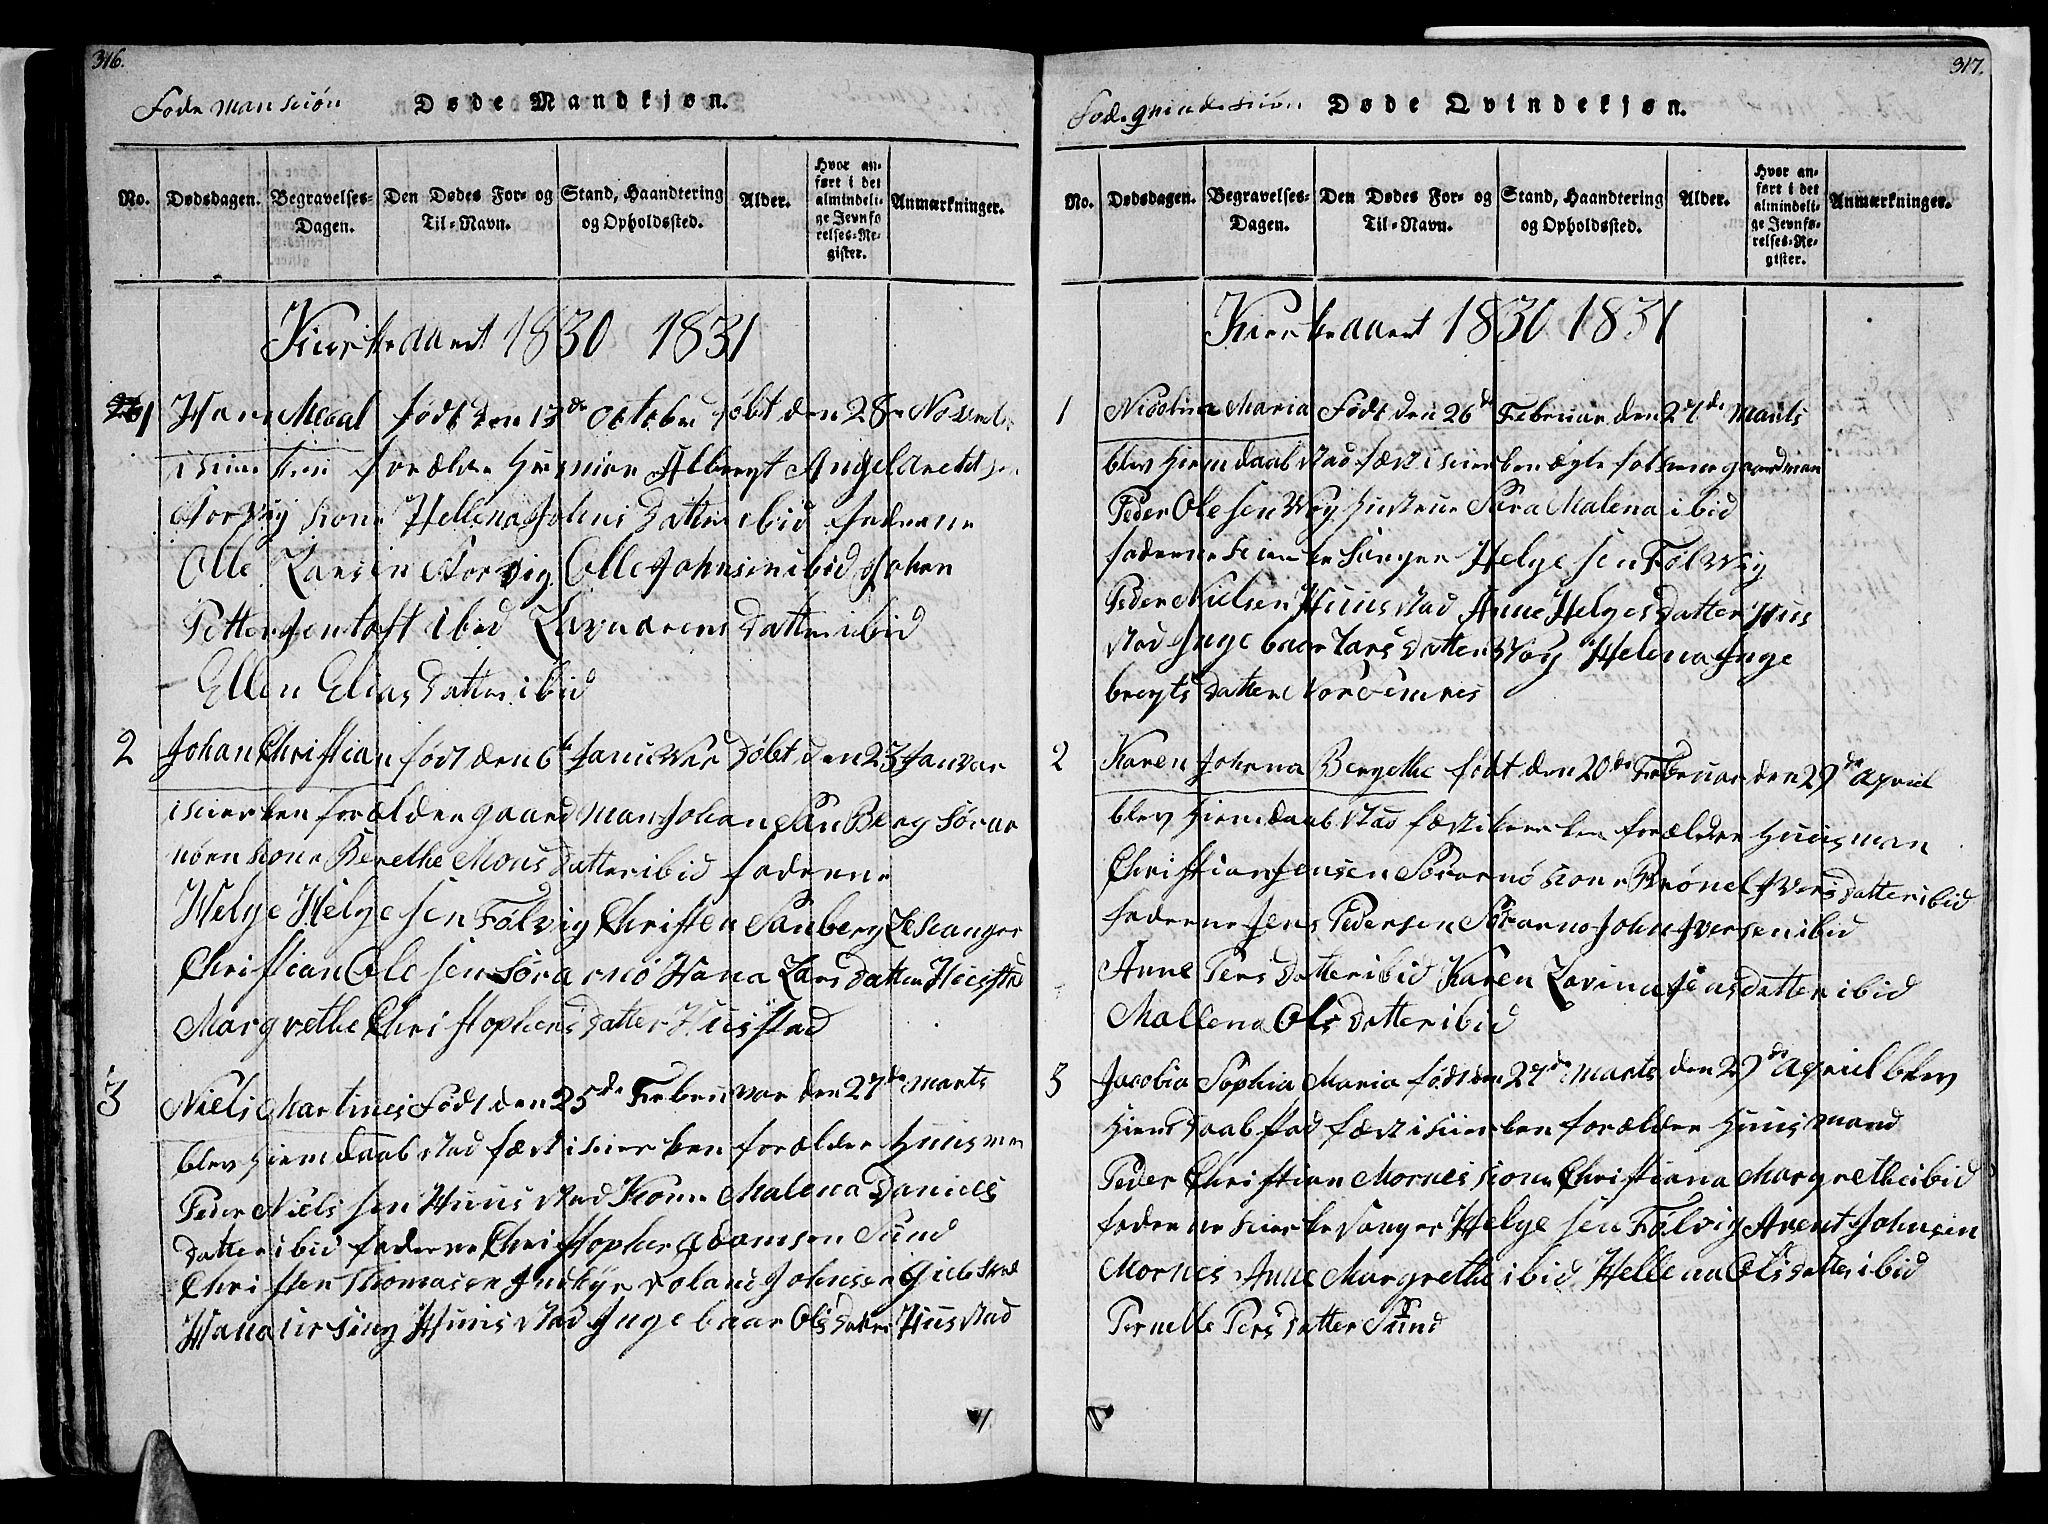 316.
Føde Manskiøn Døde Mandkjøn.
No. Dødsdagen. Begravelses-Dagen. Den Dødes For- og Til-Navn. Stand, Haandtering og Opholdssted. Alder. Hvor anført i det almindelige Jevnførelses-Register. Anmærkninger.
Kierkeaaret 1830 1831
1 Hans Meoal født den 13de October døbt den 28de Novembr
i kirken forældre Huusman Albregt Angelbrethsen
Norvig kone Hellena Johns Datter ibid faderne
Olle Larsen Norvig Olle Johnsen ibid Johan
Pettersen toft ibid Datter ibid
Ellen Elias Datter ibid
2 Johan Christian født den 6te Januwar døbt den 23 Janvar
i kierken forælder gaardman Johan Sanberg Sørar
nøen kone Berethe Mons Datter ibid faderne
Helge Helgesen Følvig Christen Sanberg Leskanger
Christian Olesen Sørarnø Hana Lars datter Huusstad
Margrethe Christophers datter Huusstad
3 Niels Martines Født den 25de Februwar den 27de Marts
blev hiemdaab stadfæst i kierken forælder Huusman
Peder Nielsen Huusstad Kone Malena Daniels
datter ibid faderne Christopher Adamsen Sund
Christen Thomasen Roland Johnsen
Hana Huusstad Ingebaar Ols datter Huusstad
317.
Føde qvindeskiøn Døde Qvindekjøn.
No. Dødsdagen. Begravelses-Dagen. Den Dødes For- og Til-Navn. Stand, Haandtering og Opholdssted. Alder. Hvor anført i det almindelige Jevnførelses-Register. Anmærkninger.
Kierkeaaret 1830 1831
1 Nicolina Maria Født den 26de Februar den 27de Marts
blev hiemdaab stadfæst i kierken ægte folkene gaardman
Peder Olesen Wog Hustrue Sara Malena ibid
faderne kierkesanger Helgesen Følwig
Peder Nielsen Huusstad Anne Helges datter Huus
stad Ingebaar Lars datter Wog Helena Inge
bregts datter Nordfinnes
2 Karen Johana Bergethe født den 20de Februar den 29de April
blev hiemdaab stadfæst i kierken forældre Huusman
Christian Jensen Sørarnø kone Brønel Ivers datter ibid
faderne Jens Pedersen Sørarnø John Iversen ibid
Anne Pers datter ibid Karen Lovina Jens datter ibid
Mallena Ols datter ibid
3 Jacobia Sophia Maria født den 27de Marts den 29de Apriel blev
hiemdaab stadfæst i kierken forælder Huusmand
Peder Christian Mornes kone Christiana Margrethe ibid
faderne kierkesanger Helgesen Følvig Arent Johnsen
Mornes Anne Margrethe ibid Hellena Ols datter ibid
Pernelle Pers datter Sund